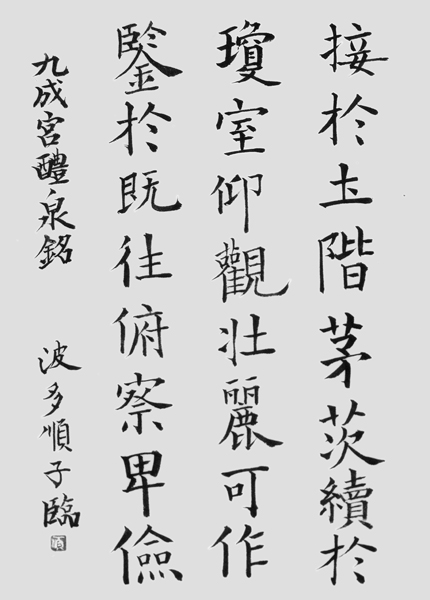 接於土階茅茨續於
瓊室仰觀壯麗可作
鑒於既往俯察卑儉
九成宮醴泉銘
波多順子臨